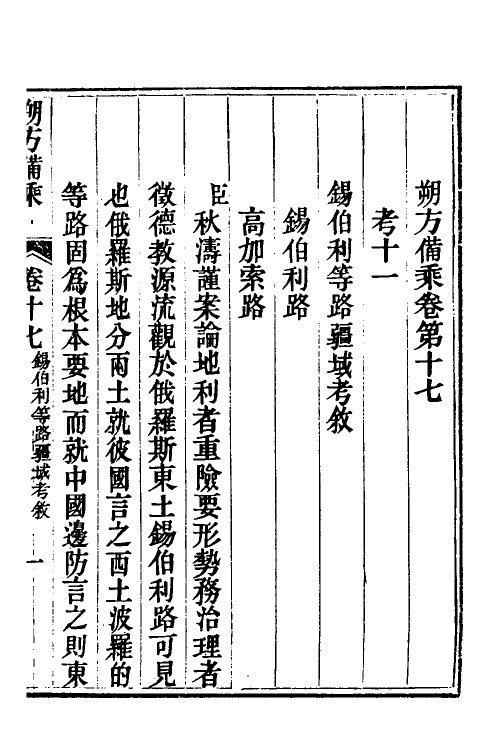 朔方備乘卷第十七
考十一
錫伯利等路疆域考敘
錫伯利路
高加索路
臣秋濤謹案論地利者重險要形勢務治理者
徵德教源流觀於俄羅斯東土錫伯利路可見
也俄羅斯地分兩土就彼國言之西土波羅的
等路固爲根本要地而就中國邊防言之則東
朔方備乘 卷十七 錫伯利等路疆域考敘 一